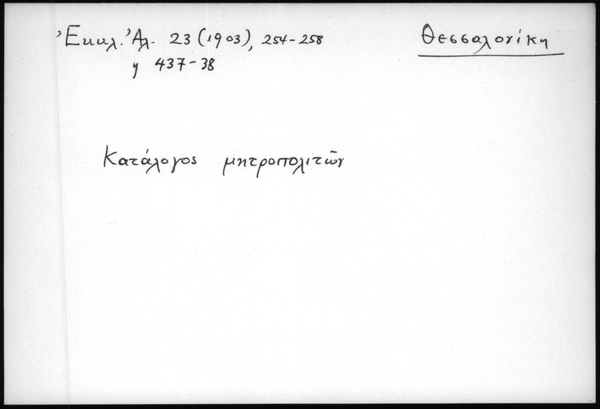 Ἐκκλ. Ἀλ. 23 (1903), 254-258
437-38
Θεσσαλονίκη
Κατάλογος μητροπολιτῶν